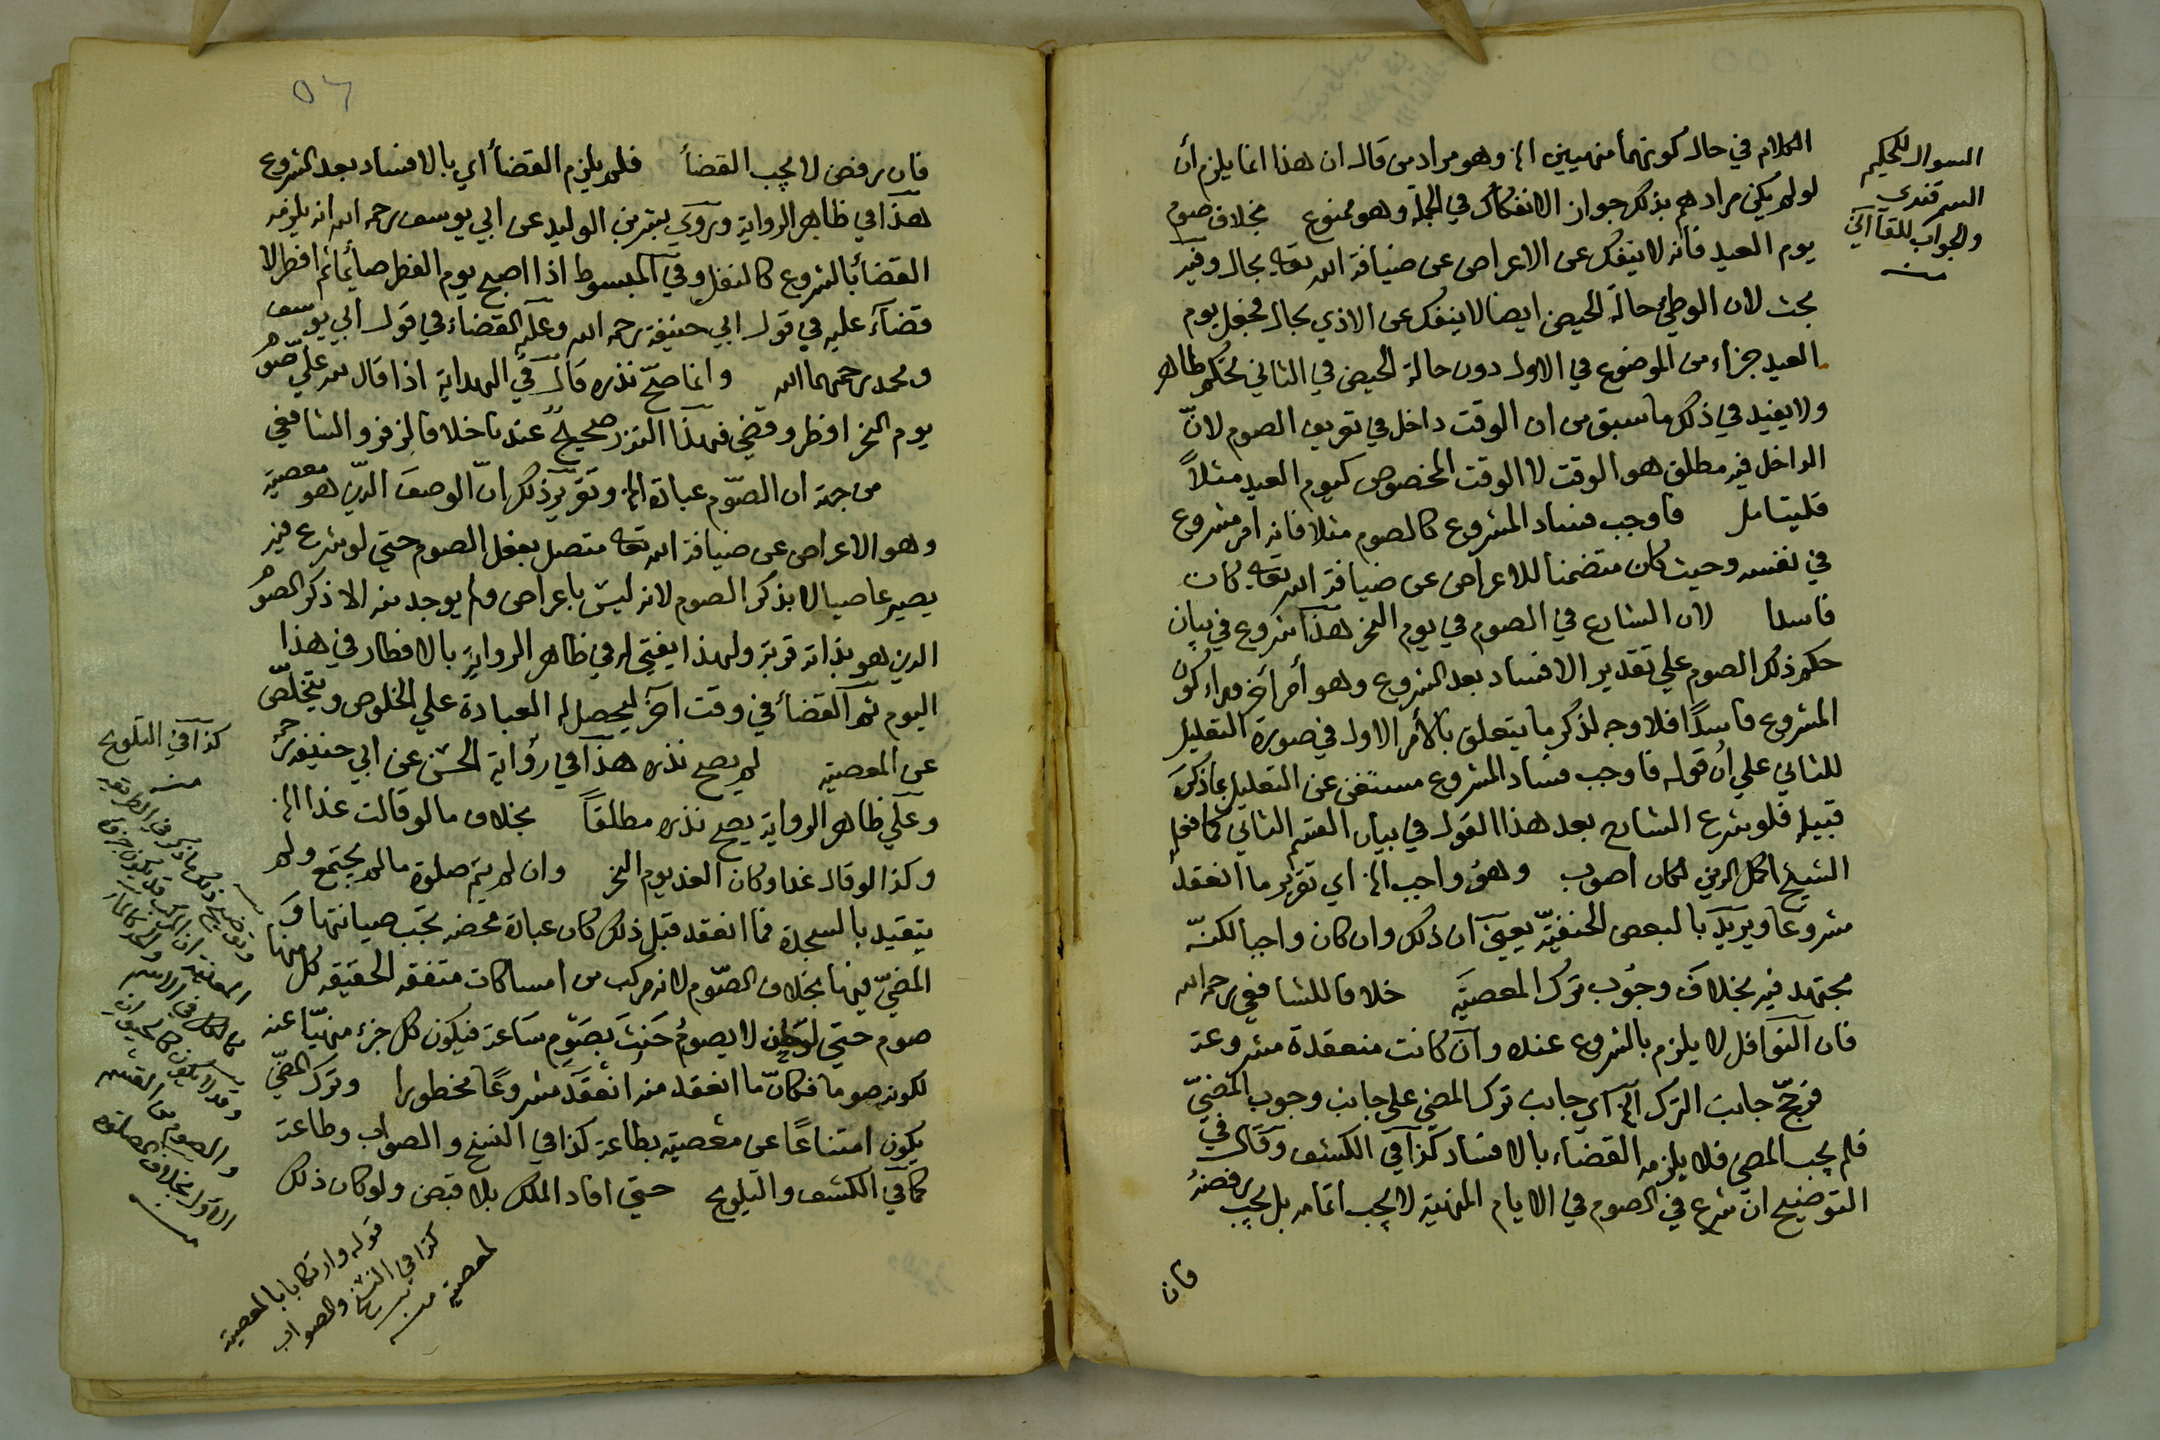 الكلام في حال كونهما منهيين الخ وهو مراد من قال ان هذا انما يلزم أن
لو لم يكن مرادهم بذلك جواز الانفكاك في الجملة وهو ممنوع بخلاف صوم
يوم العيد فانه لا ينفك عن الاعراض عن ضيافة الله تعالى بحال وفيه
بحث لان الوطئ حالة الحيض ايضا لا ينفك عن الاذي بحال فجعل يوم
العيد جزاء من الموضوع في الاول دون حالة الحيض في الثاني تحكم ظاهر
ولا يفيد في ذلك ما سبق من ان الوقت داخل في تعريف الصوم لانّ
الداخل فيه مطلق هو الوقت لا الوقت المخصوص كيوم العيد مثلاً
فليتامل فاوجب فساد المشروع كالصوم مثلا فانه امر مشروع
في نفسه وحيث كان متضمنا للاعراض عن ضيافة الله تعالى كان
فاسدا لان الشارع في الصوم في يوم النحر هذا شروع في بيان
حكم ذلك الصوم علي تقدير الافساد بعد الشروع وهو أمر أخر وراء كون
المشروع فاسدًا فلا وجه لذكر ما يتعلق بالأمر الاول في صورة التعليل
للثاني علي أن قوله فاوجب فساد المشروع مستغن عن التعليل بما ذكر
قبيله فلو شرع الشارح بعد هذا القول في بيان القسم الثاني كما فعله
الشيخ اكمل الدين لكان اصوب وهو واجب الخ اي تقرير ما انعقد
مشروعا ويريد بالبعض الحنفيّة يعني ان ذلك وان كان واجبا لكنّه
مجتهد فيه بخلاف وجوب ترك المعصية خلافا للشافعي رحمه الله
فان النوافل لا يلزم بالشروع عنده وان كانت منعقدة مشروعة
فرجّح جانب الترك الخ اي جانب ترك المضي علي جانب وجوب المضيّ
فلم يجب المضي فلا يلزمه القضاء بالافساد كذا في الكشف وقال في
التوضيح ان شرع في الصوم في الايام المنهية لا يجب اتمامه بل يجب رفضه
فان
السوال للحكيم
السمرقندى
والجواب للقاآني
منه
٥٦
فان رفض لا يجب القضأ فلم يلزم القضأ اي بالافساد بعد الشروع
هذا في ظاهر الرواية وروي بشر بن الوليد عن ابي يوسف رحمه الله انه يلزمه
القضأ بالشروع كالنفل وفي المبسوط اذا اصبح يوم الفطر صائما ثم افطر لا
قضاء عليه في قول ابي حنيفة رحمه الله وعليه القضاء في قول ابي يوسف
ومحمد رحمهما الله وانما صحّ نذره قال في الهداية اذا قال لله عليّ صوم
يوم النحر افطر وقضي فهذا النذر صحيح عندنا خلافا لزفر والشافعي
من جهة ان الصّوم عبادة الخ وتقرير ذلك انّ الوصف الذي هو معصية
وهو الاعراض عن ضيافة الله تعالى متصل بفعل الصوم حتي لو شرع فيه
يصير عاصيا لا بذكر الصوم لانه ليس باعراض ولم يوجد منه الا ذكر الصوم
الذي هو بذاته قربة ولهذا يفتي له في ظاهر الرواية بالافطار في هذا
اليوم ثم القضأ في وقت آخر ليحصل له العبادة علي الخلوص ويتخلّص
عن المعصية لم يصح نذره هذا في رواية الحسن عن ابي حنيفة رحمه
وعلي ظاهر الرواية يصح نذره مطلقاً بخلاف ما لو قالت غدا الخ
وكذا لو قال غدا وكان الغد يوم النحر وان لم يتم صلوة ما لم يجتمع ولم
يتقيد بالسجدة فما انعقد قبل ذلك كان عبادة محضه تجب صيانتها و
المضيّ فيها بخلاف الصّوم لانه مركب من امساكات متفقه الحقيقه كل منها
صوم حتي لو حلف لا يصوم حنث بصوم ساعة فيكون كل جزء منهيّا عنه
لكونه صوما فكانّ ما انعقد منه انعقد مشروعًا محظورا وترك المضيّ
يكون امتناعًا عن معصية بطاعة كذا في النسخ والصواب وطاعة
كما في الكشف والتلويح حتي افاد الملك بلا قبض ولو كان ذلك
كذا في التلويح
منه
قوله وارتكابا بالمعصية
كذا في النسخ والصواب
لمعصية منه